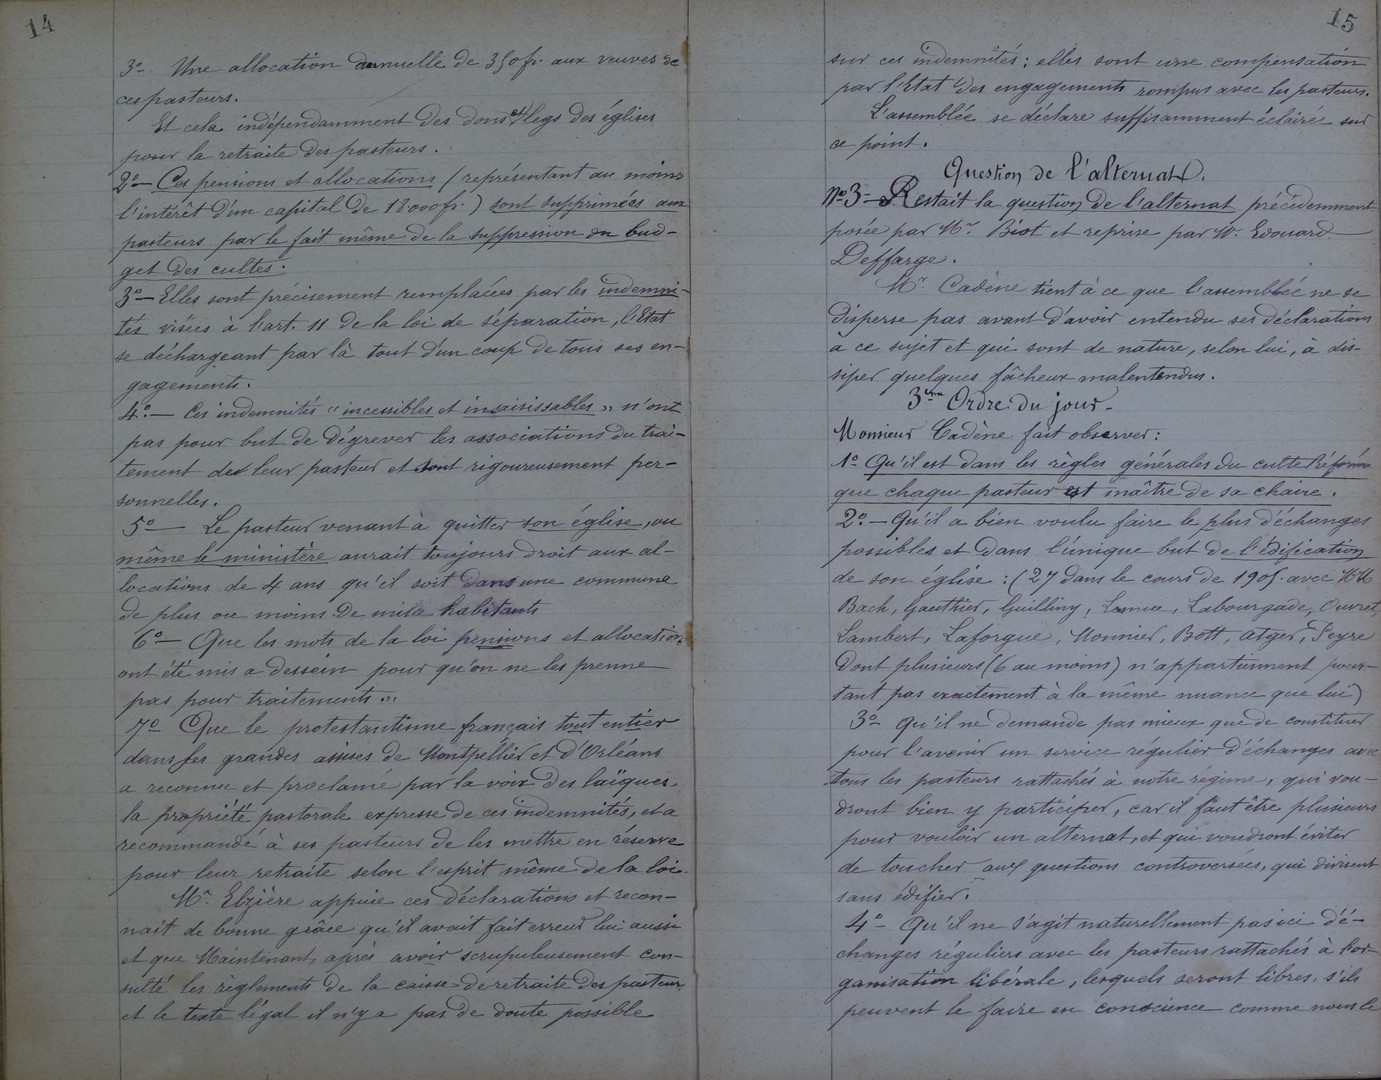 14
3º Une allocation annuelle de 350 fr. aux veuves de
ces pasteurs.
Et cela indépendamment des dons et legs des églises
pour la retraite des pasteurs.
2º — Ces pensions et allocations (représentant au moins
l'intérêt d'un capital de 18000 fr.) sont supprimées aux
pasteurs par le fait même de la suppression du bud-
get des cultes.
3º — Elles sont précisement remplacées par les indemni-
tés visées à l'art. 11 de la loi de séparation, l'Etat
se déchargeant par là tout d'un coup de tous ses en-
gagements.
4º — Ces indemnités "incessibles et insaisissables" n'ont
pas pour but de dégrever les associations du trai-
tement de leur pasteur et sont rigoureusement per-
sonnelles.
5º — Le pasteur venant à quitter son église, ou
même le ministère aurait toujours droit aux al-
locations de 4 ans qu'il soit dans une commune
de plus ou moins de mille habitants
6º — Que les mots de la loi pensions et allocations
ont été mis a dessein pour qu'on ne les prenne
pas pour traitements"
7º Que le protestantisme français tout entier
dans ses grandes assises de Montpellier et d'Orléans
a reconnu et proclamé par la voix des laïques
la propriété pastorale expresse de ces indemnités, et a
recommandé à ses pasteurs de les mettre en réserve
pour leur retraite selon l'esprit même de la loi.
Mr. Elzière appuie ces déclarations et recon-
nait de bonne grâce qu'il avait fait erreur lui aussi
et que Maintenant, après avoir scrupuleusement con-
sulté les règlements de la caisse de retraite des pasteurs
et le texte légal il n'y a pas de doute possible
15
sur ces indemnités; elles sont une compensation
par l'Etat des engagements rompus avec les pasteurs.
L'assemblée se déclare suffisamment éclairée sur
ce point.
Question de l'alternat.
Nº 3 — Restait la question de l'alternat précédemment
posée par Mr Biot et reprise par M. Edouard
Deffarge.
Mr. Cadène tient à ce que l'assemblée ne se
disperse pas avant d'avoir entendu ses déclarations
a ce sujet et qui sont de nature, selon lui, à dis-
siper quelques fâcheux malentendus.
3ème Ordre du jour.
Monsieur Cadène fait observer:
1º Qu'il est dans les règles générales du culte Réformé
que chaque pasteur est maître de sa chaire.
2º — Qu'il a bien voulu faire le plus d'échanges
possibles et dans l'unique but de l'édification
de son église: (27 dans le cours de 1905 avec MM
Bach, Gauthier, Guilliny, Labourgade, Ouvret,
Lambert, Laforgue, Monnier, Bott, Atger, Peyre
dont plusieurs (6 au moins) n'appartiennent pour-
tant pas exactement à la même nuance que lui)
3º qu'il ne demande pas mieux que de constituer
pour l'avenir un service régulier d'échanges avec
tous les pasteurs rattachés à notre régime, qui vou-
dront bien y participer, car il faut être plusieurs
pour vouloir un alternat, et qui voudront éviter
de toucher aux questions controversées, qui divisent
sans édifier.
4º Qu'il ne s'agit naturellement pas ici d'é-
changes réguliers avec les pasteurs rattachés à l'or-
ganisation libérale, lesquels seront libres, s'ils
peuvent le faire en conscience comme nous le